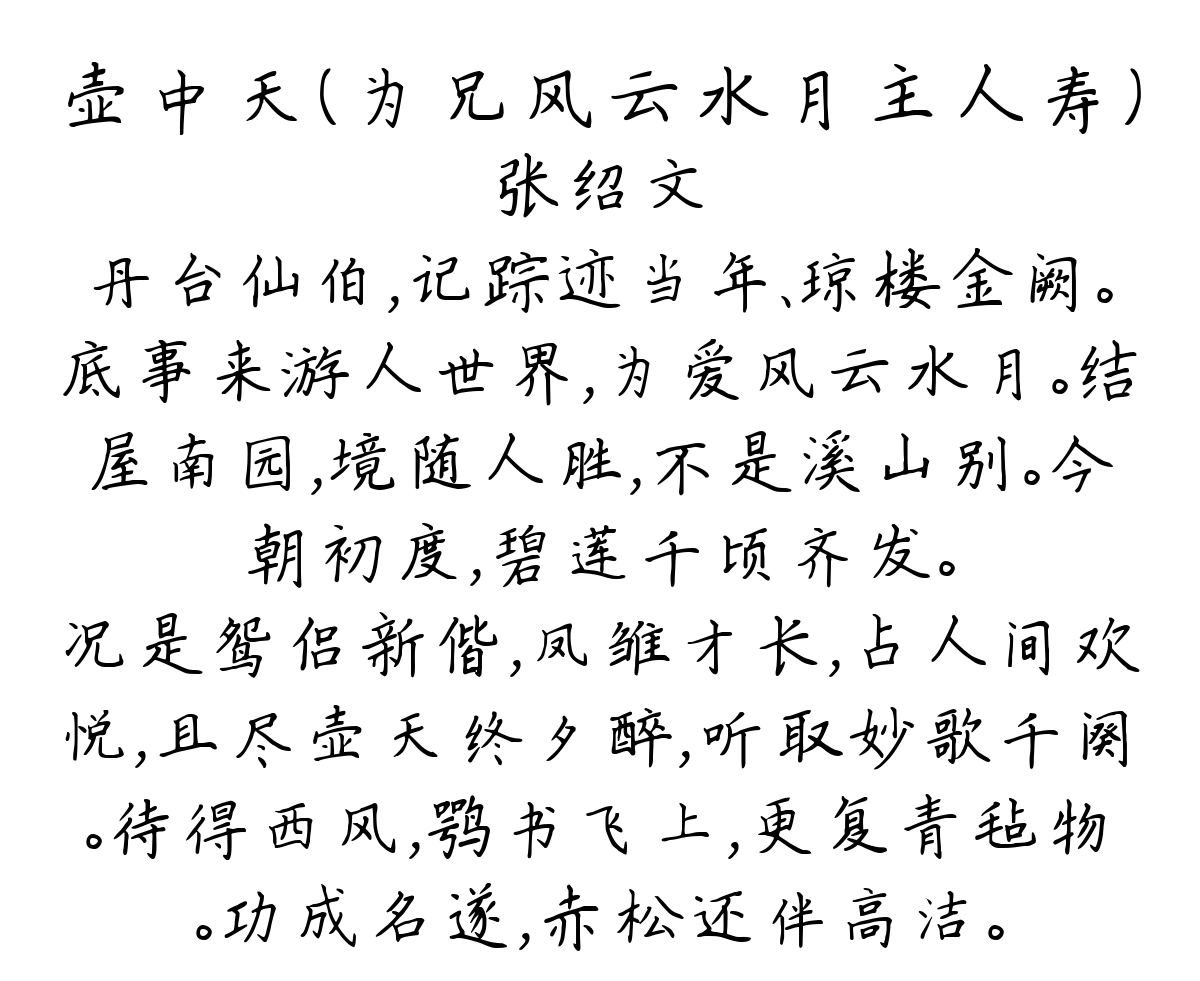 壶中天(为兄风云水月主人寿)
张绍文
丹台仙伯,记踪迹当年、琼楼金阙。
底事来游人世界,为爱风云水月。结
屋南园,境随人胜,不是溪山别。今
朝初度,碧莲千顷齐发。
况是鸳侣新偕,凤雏才长,占人间欢
悦,且尽壶天终夕醉,听取妙歌千阕
。待得西风,鹗书飞上,更复青毡物
。功成名遂,赤松还伴高洁。